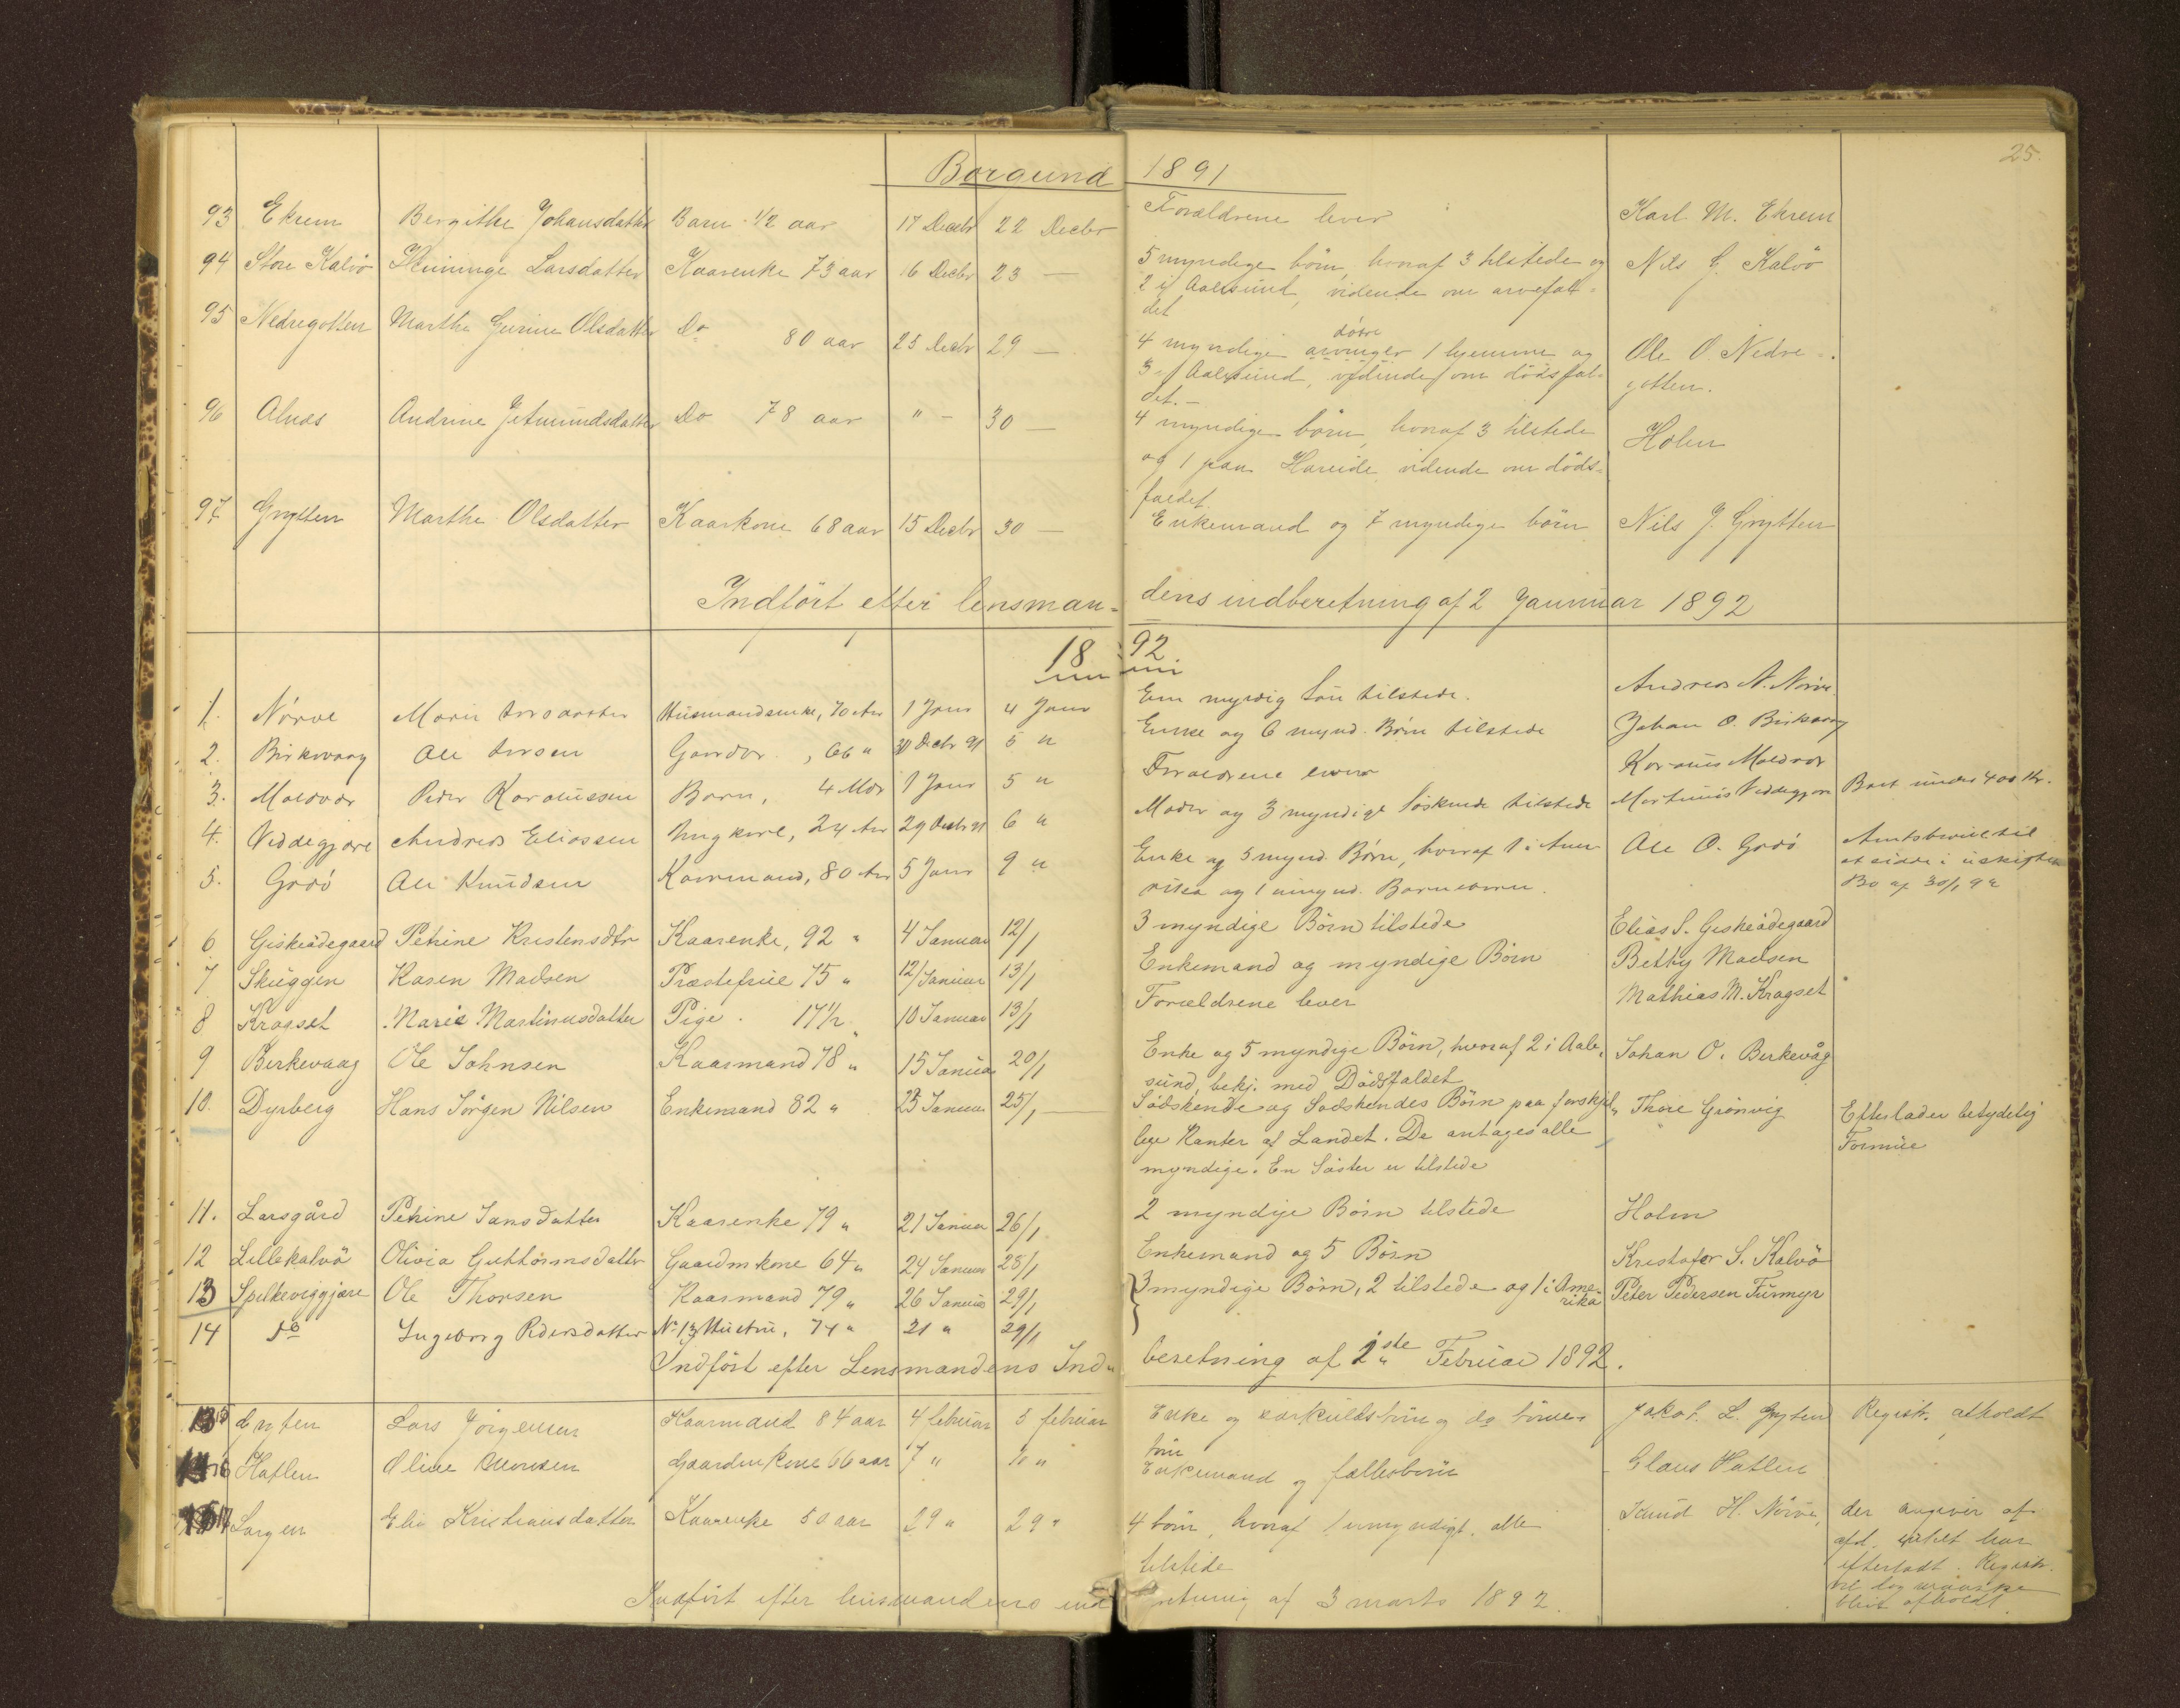 25.
Borgund 1891
93 Ekrem Bergithe Johansdatter Barn 1/2 aar 17 Decbr 22 Decbr Forældrene lever Karl M. Ekrem
94 Store Kalvö Henninge Larsdatter Kaarenke 73 aar 16 Decbr 23 — 5 myndige börn, hvoraf 3 tilstede og Nils J. Kalvö
2 i Aalesund, vidende om arvefal-
det
95 Nedregotten Marthe Gurine Olsdatter Do 80 aar 25 Decbr 29 — 4 myndige döttre arvinger 1 hjemme og Ole O. Nedre-
3 i Aalesund, vidende om dödsfal- gotten.
det.—
96 Alnæs Andrine Jetmundsdatter Do 78 aar " — 30 — 4 myndige börn, hvoraf 3 tilstede Holm
og 1 paa Hareide vidende om döds-
faldet.
97 Grytten Marthe Olsdatter Kaarkone 68 aar 15 Decbr 30 — Enkemand og 7 myndige börn Nils J. Grytten
Indfört efter lensman-dens indberetning af 2 Januuar 1892
1892
1. Nørve Maria Husmandsenke, 70 Aar 1 Janr 4 Janr Een myndig Søn tilstede. Andreas N. Nørve.
2. Birkevaag Ole Gaardbr., 66 " 30 Decbr 91 5 " Enke og 6 mynd. Børn tilstede Johan O. Birkevaag
3. Moldvær Peder Karolussen Barn, 4 Mdr 1 Janr 5 " Forældrene lever Karolus Moldvær
4. Veddegjære Andreas Eliassen Ungkarl, 24 Aar 29 Decbr 91 6 " Moder og 3 myndige Søskende tilstede Martinus Veddegjære Boet under 400 Kr.
5. Godö Ole Knudsen Kaarmand, 80 Aar 5 Janr 9 " Enke og 5 mynd. Børn, hvoraf 1 i Ame- Ole O. Godö Amtsbevil til
rika og 1 umynd. Barnebarn. at sidde i uskiftet
Bo af 30/1 92
6 Giskeödegaard Petrine Kristensdtr Kaarenke, 92 " 4 Januar 12/1 3 myndige Börn tilstede Elias S. Giskeödegaard
7 Skuggen Karen Madsen Præstefrue 75 " 12/Januar 13/1 Enkemand og myndige Börn Betty Madsen
8 Kragset Marie Martinusdatter Pige. 17 1/2 " 10 Januar 13/1 Forældrene lever Mathias M. Kragset
9 Birkevaag Ole Johnsen Kaarmand 78 " 15 Januar 20/1 Enke og 5 myndige Börn, hvoraf 2 i Aale- Johan O. Birkevåg
sund, bekj. med Dödsfaldet
10. Dyrberg Hans Jörgen Nilsen Enkemand 82 " 23 Januar 25/1 — Södskende og Södskendes Börn paa forskjel- Thore Grönvig Efterlader betydelig
lige Kanter af Landet. De antages alle Formue
myndige. En Söster er tilstede
11. Larsgård Petrine Jansdatter Kaarenke 79 " 21 Januar 26/1 2 myndige Börn tilstede Holm
12 Lillekalvö Olivia Guttormsdatter Gaardmkone 64 " 24 Januar 28/1 Enkemand og 5 Börn Kristofer S. Kalvö
13 Spilkeviggjære Ole Thorsen Kaarmand 79 " 26 Januar 29/1 3 myndige Börn, 2 tilstede og 1 i Ame- Peter Pedersen Furmyr
rika
14 do Ingeborg Pedersdatter No 13 Hustru, 74 " 21 " 29/1
Indfört efter Lensmandens Ind-beretning af 1ste Februar 1892.
15 Gryten Lars Jörgensen Kaarmand 84 aar 4 februar 5 februar Enke og særkuldsbörn og do börne- Jakob L. Gryten Registr. afholdt
börn
16 Hatlen Oline Gaardmkone 66 aar 7 " 10 " Enkemand og fællesbörn Claus Hatlen
17 Sorgen Kristiansdatter Kaarenke 50 aar 29 " 29 " 4 börn, hvoraf 1 umyndigt. alle Knud H. Nörve, der angiver at
tilstede afd. intet har
efterladt. Registr.
vil dog
blive afholdt.
Indfört efter lensmandens indberetning af 3 marts 1892.